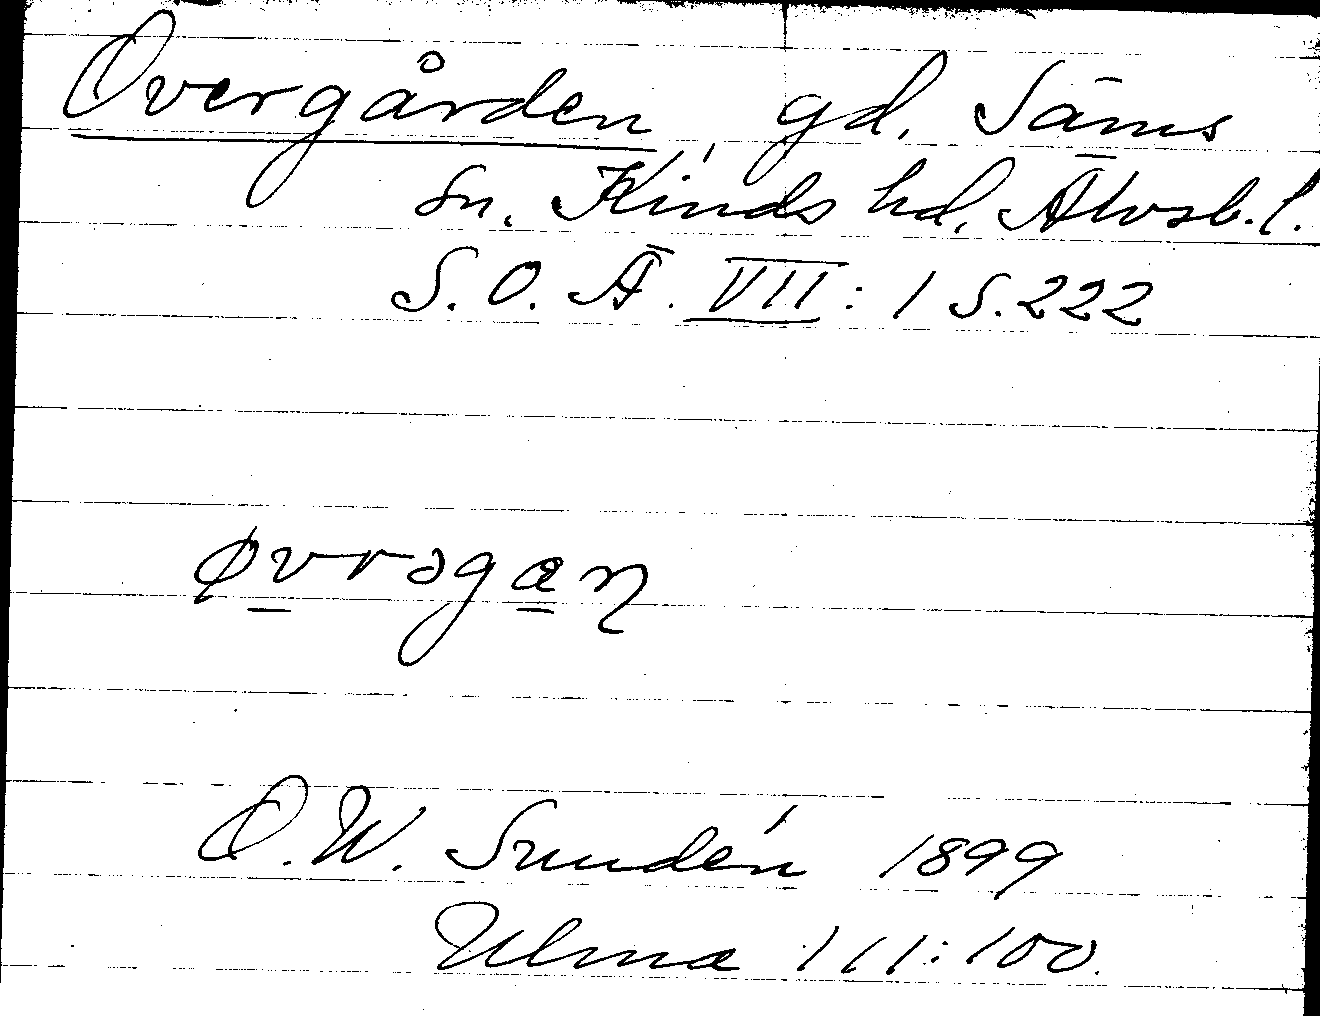 Övergården, gd. Säms
sn. Kinds hd. Älvsb. l.
S.O.Ä. VII: 1 S. 222
øvrəgæɳ
D.W. Sundén 1899
Ulma 111:100.